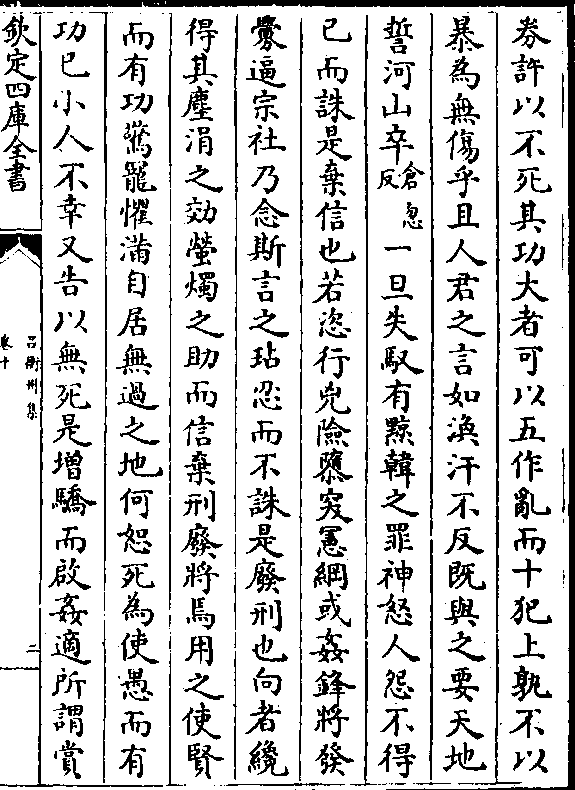 券許以不死其功大者可以五作亂而十犯上孰不以
暴為無傷乎且人君之言如渙汗不反既與之要天地
誓河山卒倉忽反一旦失馭有黥韓之罪神怒人怨不得
已而誅是棄信也若恣行兇險隳突憲綱或姦鋒將發
釁逼宗社乃念斯言之玷忍而不誅是廢刑也向者纔
得其塵涓之効螢燭之助而信棄刑廢將焉用之使賢
而有功驚寵懼滿自居無過之地何恕死為使愚而有
功已小人不幸又告以無死是增驕而啟姦適所謂賞
欽定四庫全書
呂衡州集
卷十
二